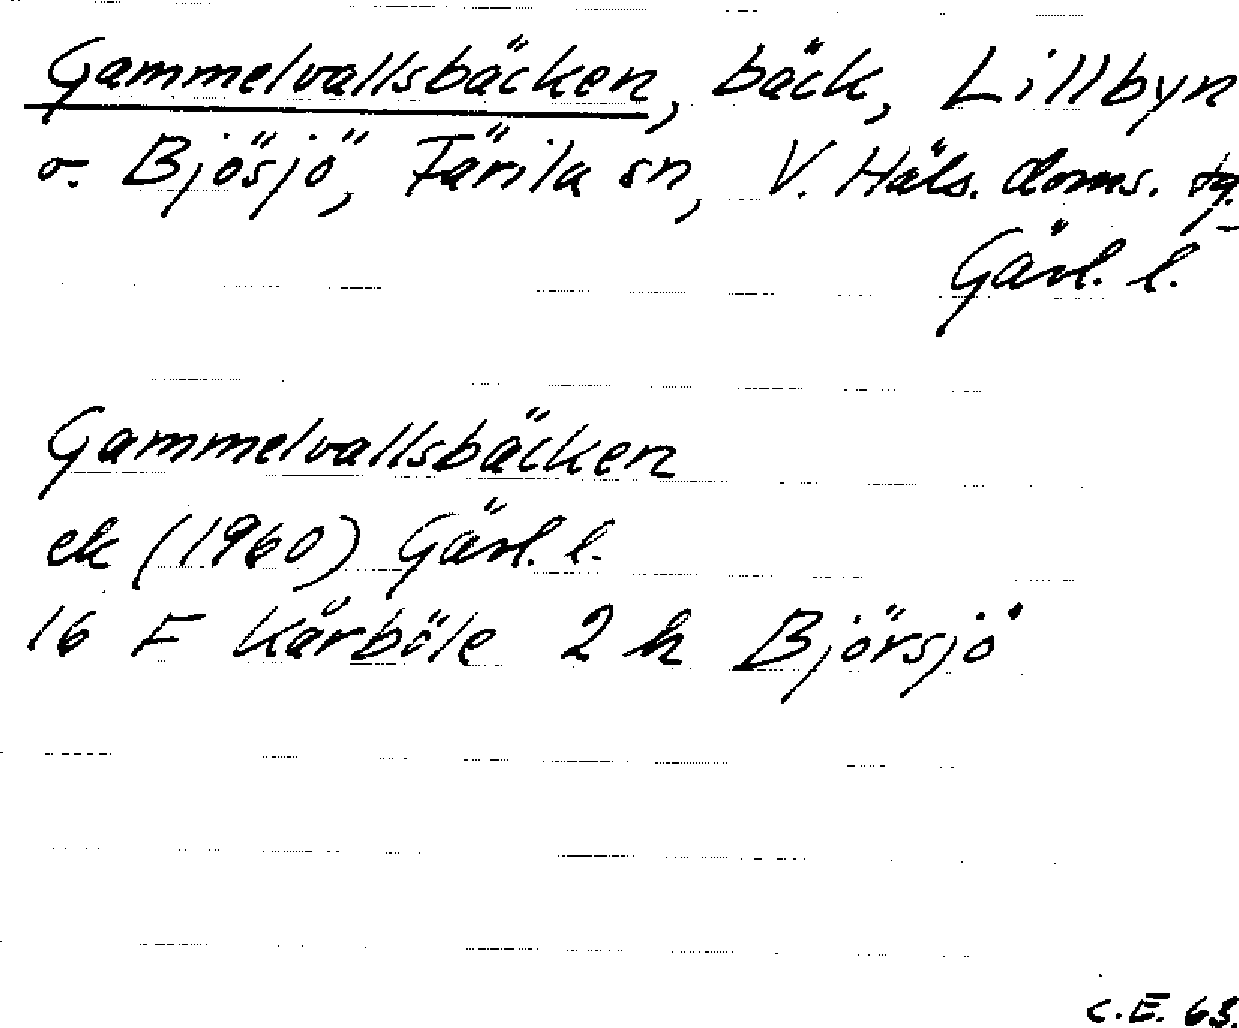 Gammelvallsbäcken, bäck, Lillbyn
o. Bjösjö, Färila sn, V. Häls. doms. tg.
Gävl. l.
Gammelvallsbäcken
ek (1960) Gävl. l.
16 F Kårböle 2 h Björsjö
C.E. 63.